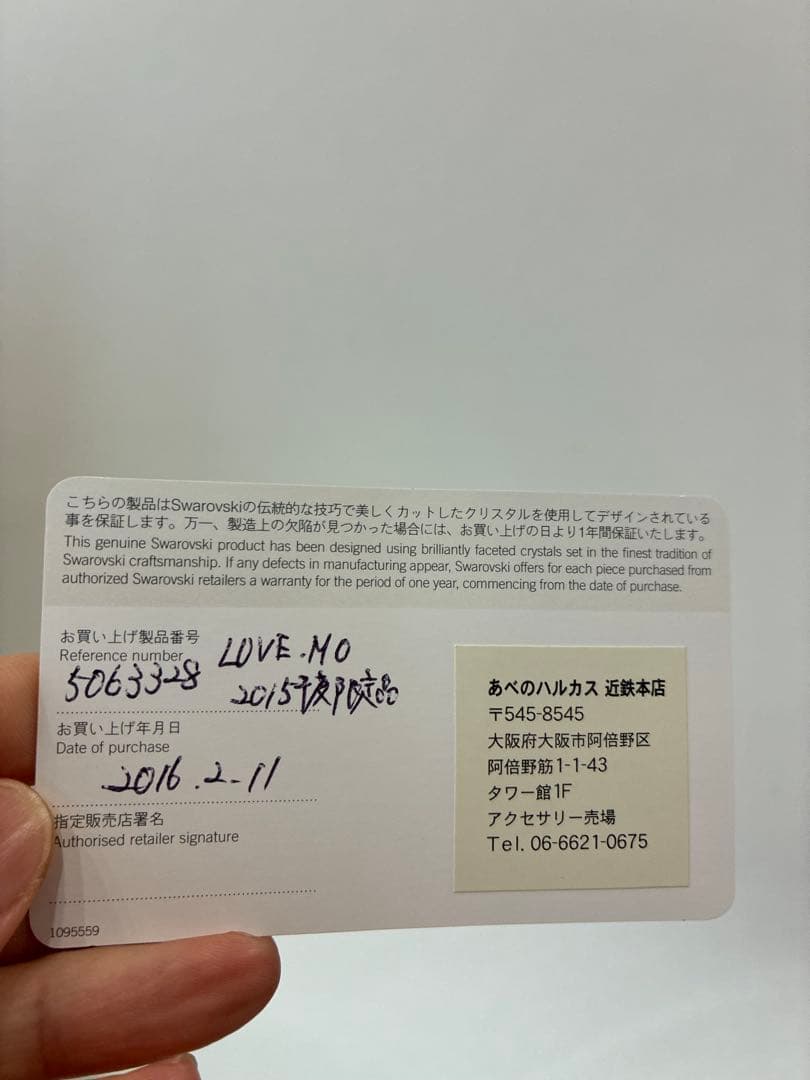 こちらの製品はSwarovskiの伝統的な技巧で美しくカットしたクリスタルを使用してデザインされている
事を保証します。万一、製造上の欠陥が見つかった場合には、お買い上げの日より1年間保証いたします。
This genuine Swarovski product has been designed using brilliantly faceted crystals set in the finest tradition of
Swarovski craftsmanship. If any defects in manufacturing appear, Swarovski offers for each piece purchased from
authorized Swarovski retailers a warranty for the period of one year, commencing from the date of purchase.
お買い上げ製品番号
Reference number
LOVE.MO
5063328
2015年度限定品
お買い上げ年月日
Date of purchase
2016.2-11
指定販売店署名
Authorised retailer signature
1095559
あべのハルカス 近鉄本店
〒545-8545
大阪府大阪市阿倍野区
阿倍野筋1-1-43
タワー館1F
アクセサリー売場
Tel. 06-6621-0675